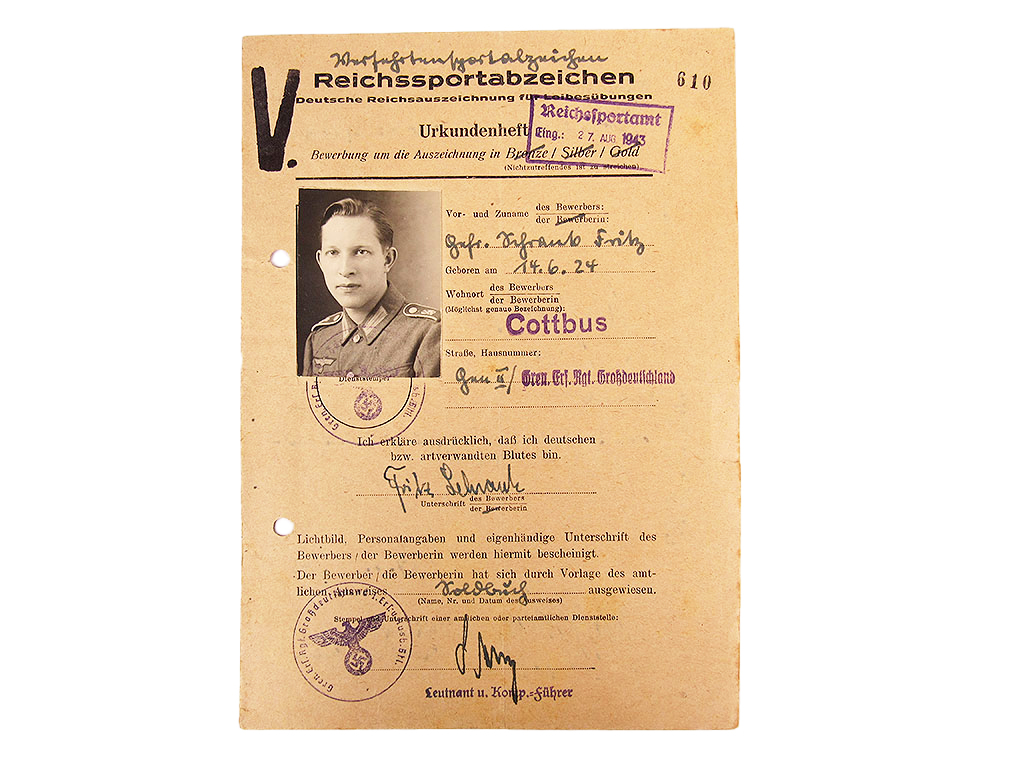 Versehrtensportabzeichen
Reichssportabzeichen
610
V.
Deutsche Reichsauszeichnung für Leibesübungen
Reichssportamt
Urkundenheft
Eing.: 27. AUG 1943
Bewerbung um die Auszeichnung in Bronze / Silber / Gold
(Nichtzutreffendes ist zu streichen)
Vor- und Zuname des Bewerbers:
der Bewerberin:
Gefr. Schrank Fritz
Geboren am 14.6.24
Wohnort des Bewerbers
der Bewerberin
(Möglichst genaue Bezeichnung):
Cottbus
Straße, Hausnummer:
Gen II/ Gren. Ers. Rgt. Großdeutschland
Dienststempel
Ich erkläre ausdrücklich, daß ich deutschen
bzw. artverwandten Blutes bin.
Fritz Schrank
Unterschrift des Bewerbers
der Bewerberin
Lichtbild, Personalangaben und eigenhändige Unterschrift des
Bewerbers / der Bewerberin werden hiermit bescheinigt.
Der Bewerber / die Bewerberin hat sich durch Vorlage des amt-
lichen Ausweises Soldbuch ausgewiesen.
(Name, Nr. und Datum des Ausweises)
Stempel und Unterschrift einer amtlichen oder parteiamtlichen Dienststelle:
Leutnant u. Komp.-Führer